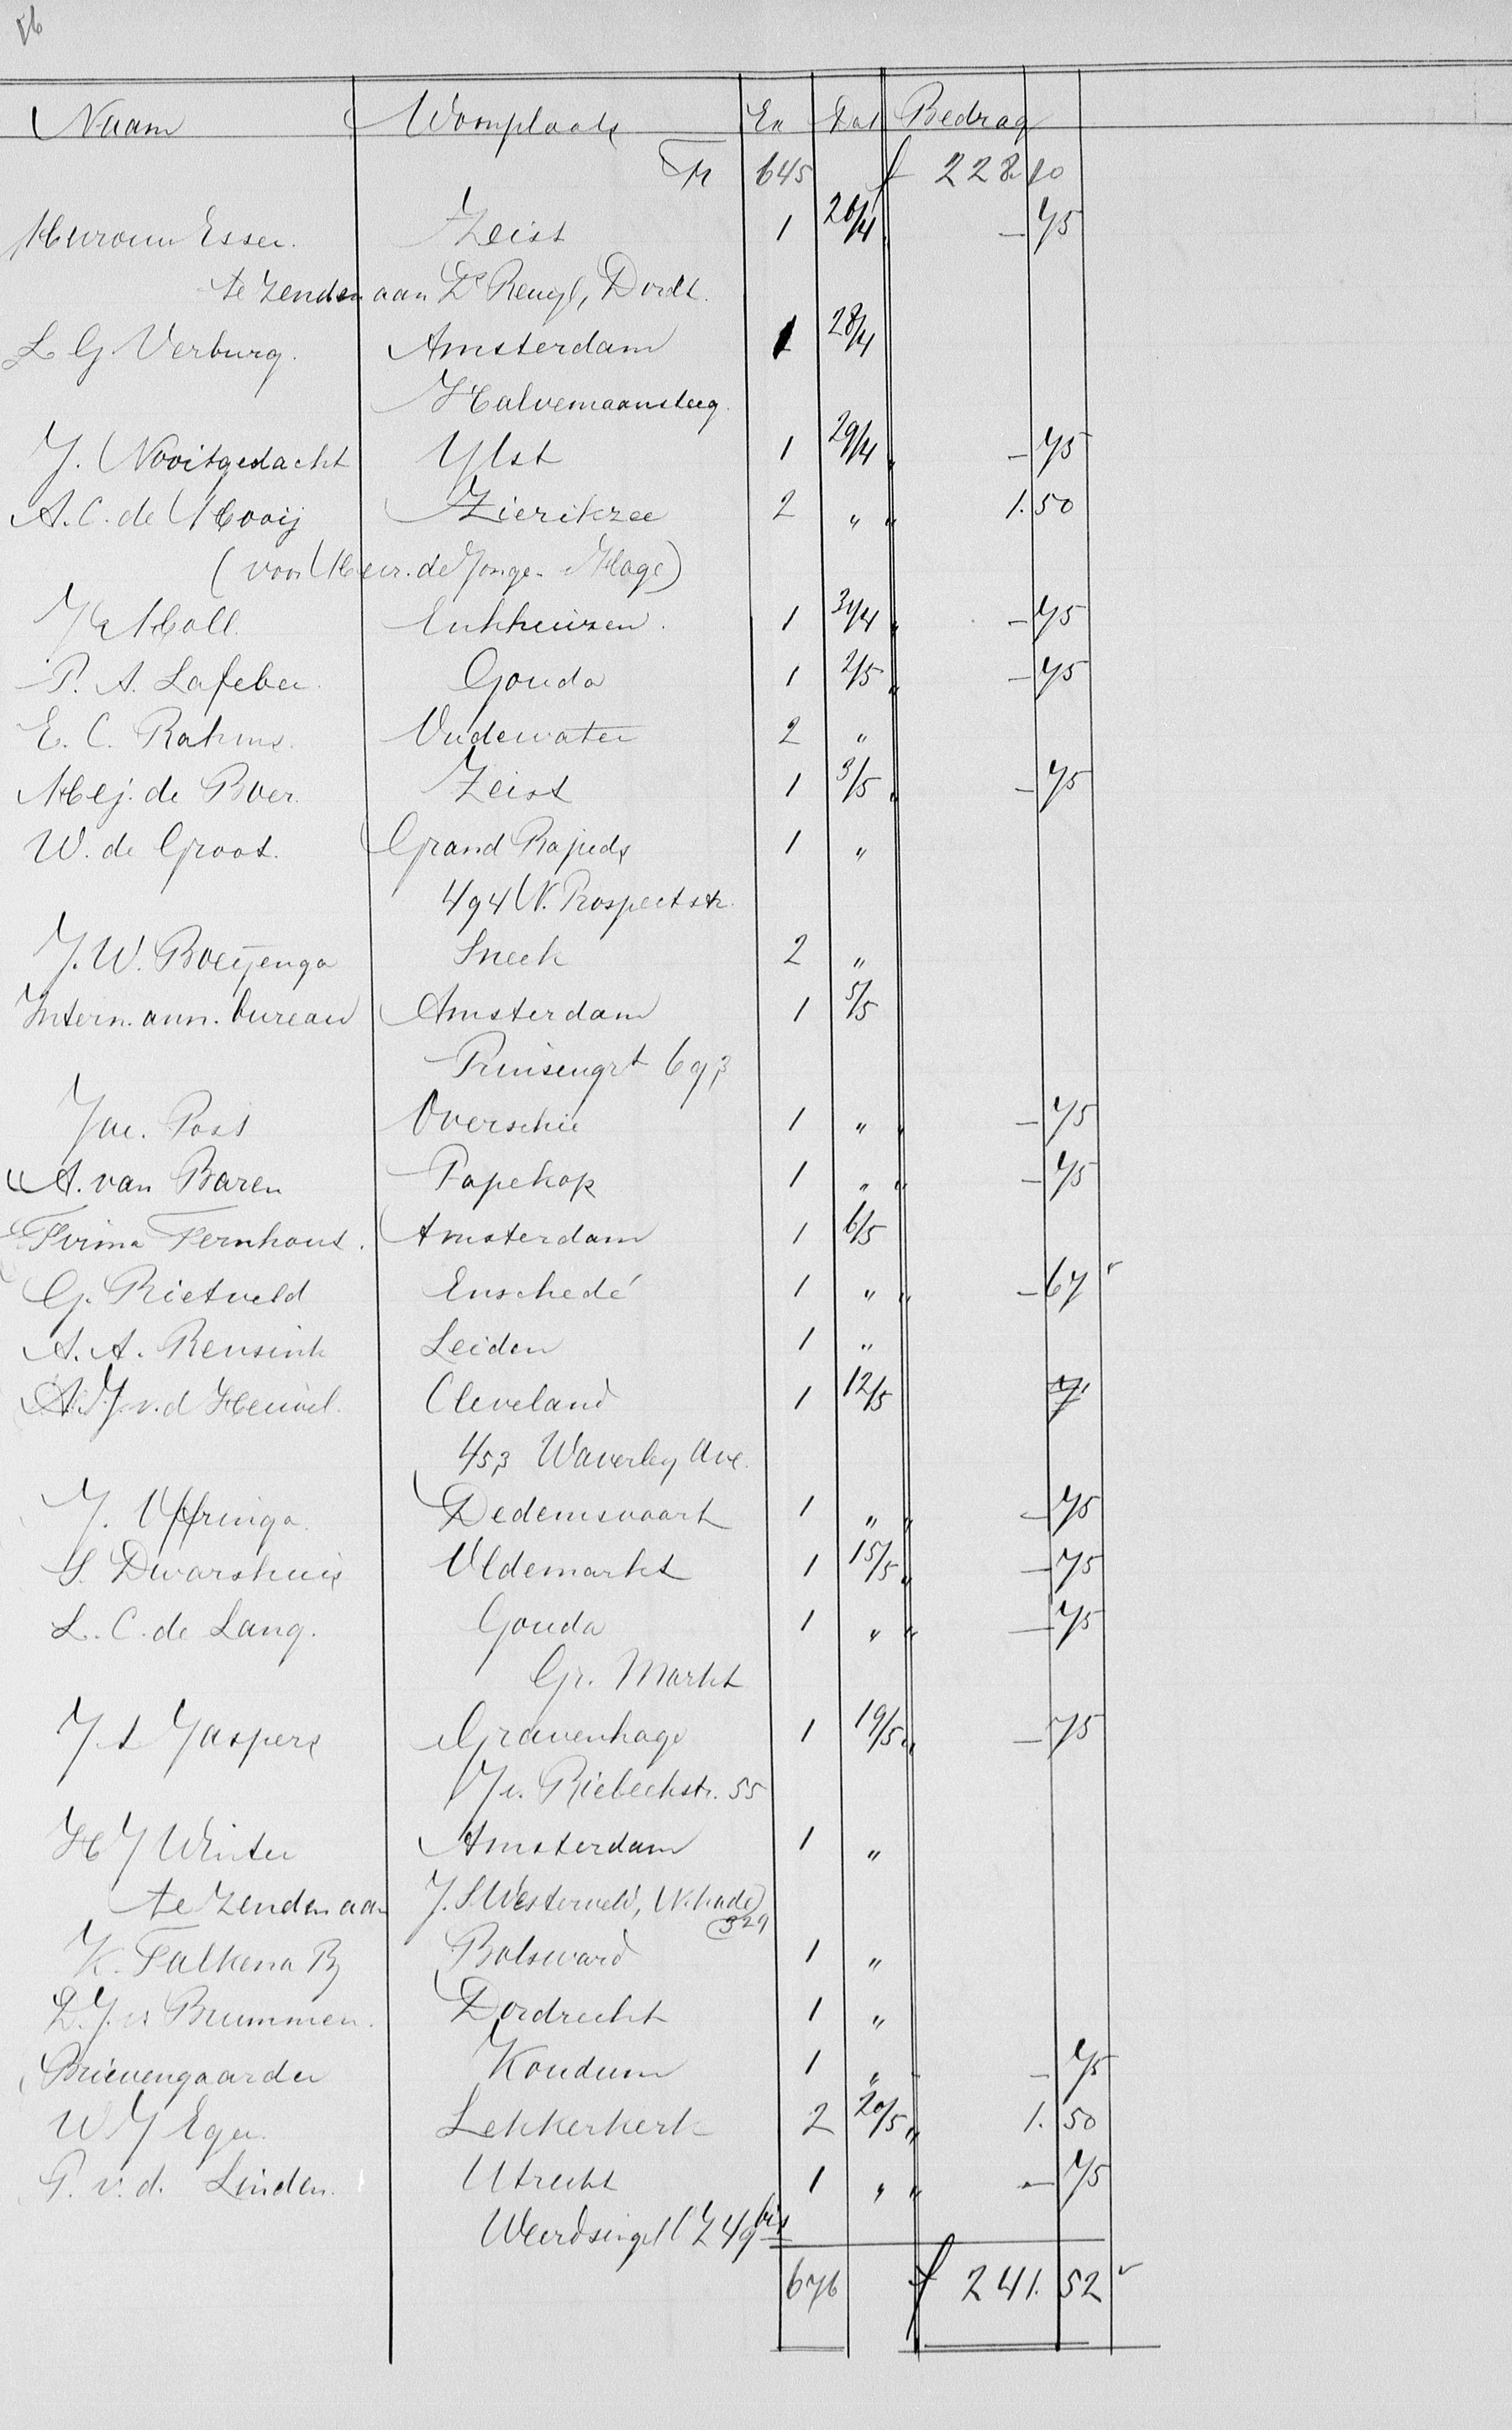 Naam Woonplaats Ex Dat Bedrag
Tr 645 f 228.10
Mevrouw Esser. Zeist 1 26/4 " — 75
te zenden aan Ds Rengt, Dordt.
L G. Verburg. Amsterdam 1 28/4
Halvemaansteeg.
J. Nooitgedacht Ylst 1 29/4 " — 75
A. C. de Mooij Zierikzee 2 " " 1. 50
(voor Mevr. de Jonge. Hage)
J Moll. Enkhuizen. 1 30/4 " — 75
P. A. Lafeber. Gouda 1 2/5 " — 75
E. C. Rahms. Oudewater 2 "
Mej. de Boer. Zeist 1 3/5 " — 75
W. de Groot. Grand Rapids 1 "
494 N. Prospect str.
J. W. Boeijenga Sneek 2 "
Intern. ann. bureau Amsterdam 1 5/5
Prinsengrt 693
Jac. Post Overschie 1 " " — 75
A. van Baren Papekop 1 " " — 75
Firma Fernhout. Amsterdam 1 6/5
G. Rietveld Enschedé 1 " " — 67
A. A. Rensink Leiden 1 "
A. J. v. d Heuvel. Cleveland 1 12/5
453 Waverley Ave.
J. Offringa. Dedemsvaart 1 " " — 75
S. Dwarshuis Oldemarkt 1 15/5 " — 75
L. C. de Lang. Gouda 1 " " — 75
Gr. Markt
J. S Jaspers Gravenhage 1 19/5 " — 75
J v. Riebeekstr. 55
H J Winter Amsterdam 1 "
te zenden aan J. S. Westerveld, N. kade
329
K. Falkena Bz Bolsward 1 "
D. J. v. Brummen. Dordrecht 1 "
Brievengaarder Koudum 1 " — 75
W J Eger. Lekkerkerk 2 20/5 " 1. 50
P. v. d. Linden. Utrecht 1 " " — 75
Weerdsingel OZ 49 bis
676 f 241. 52